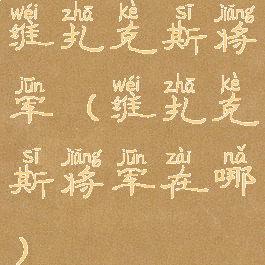 wéi zhā kè sī jiāng
维扎克斯将
jūn wéi zhā kè
军(维扎克
sī jiāng jūn zài nǎ
斯将军在哪
)